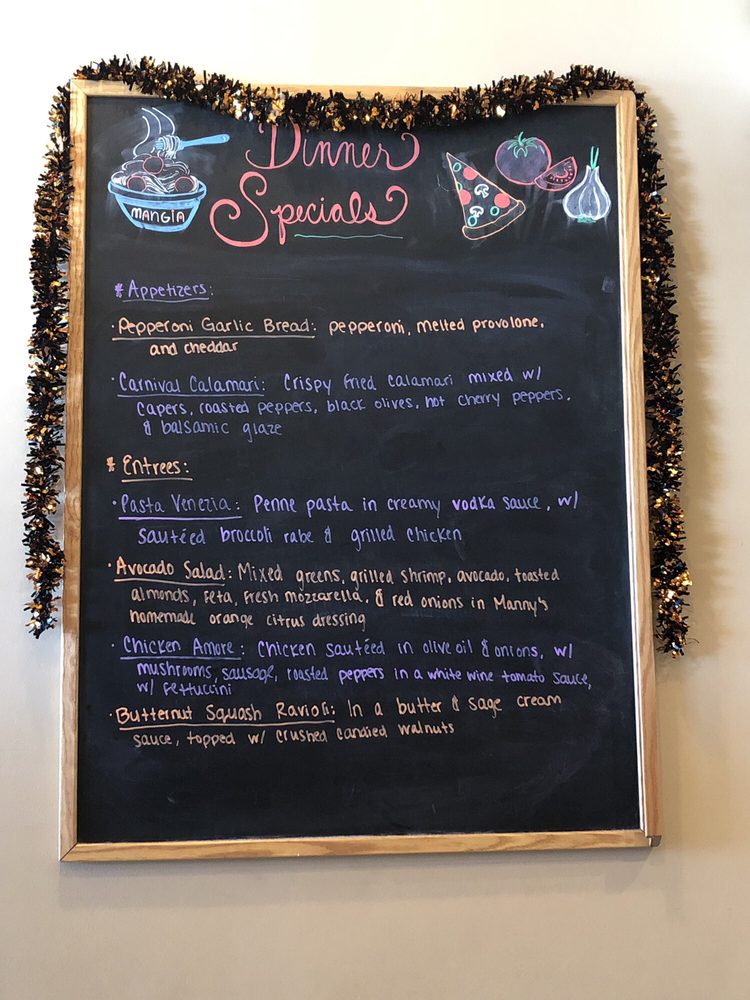 Dinner
Specials
MANGIA
* Appetizers:
· Pepperoni Garlic Bread: pepperoni, melted provolone,
and cheddar
· Carnival Calamari: Crispy fried calamari mixed w/
capers, roasted peppers, black olives, hot cherry peppers,
& balsamic glaze
* Entrees:
· Pasta Venezia: Penne pasta in creamy vodka sauce, w/
sautéed broccoli rabe & grilled chicken
· Avocado Salad: Mixed greens, grilled shrimp, avocado, toasted
almonds, feta, fresh mozzarella, & red onions in Manny's
homemade orange citrus dressing
· Chicken Amore: Chicken sautéed in olive oil & onions, w/
mushrooms, sausage, roasted peppers in a white wine tomato sauce,
w/ fettuccini
· Butternut Squash Ravioli: In a butter & sage cream
sauce, topped w/ crushed candied walnuts